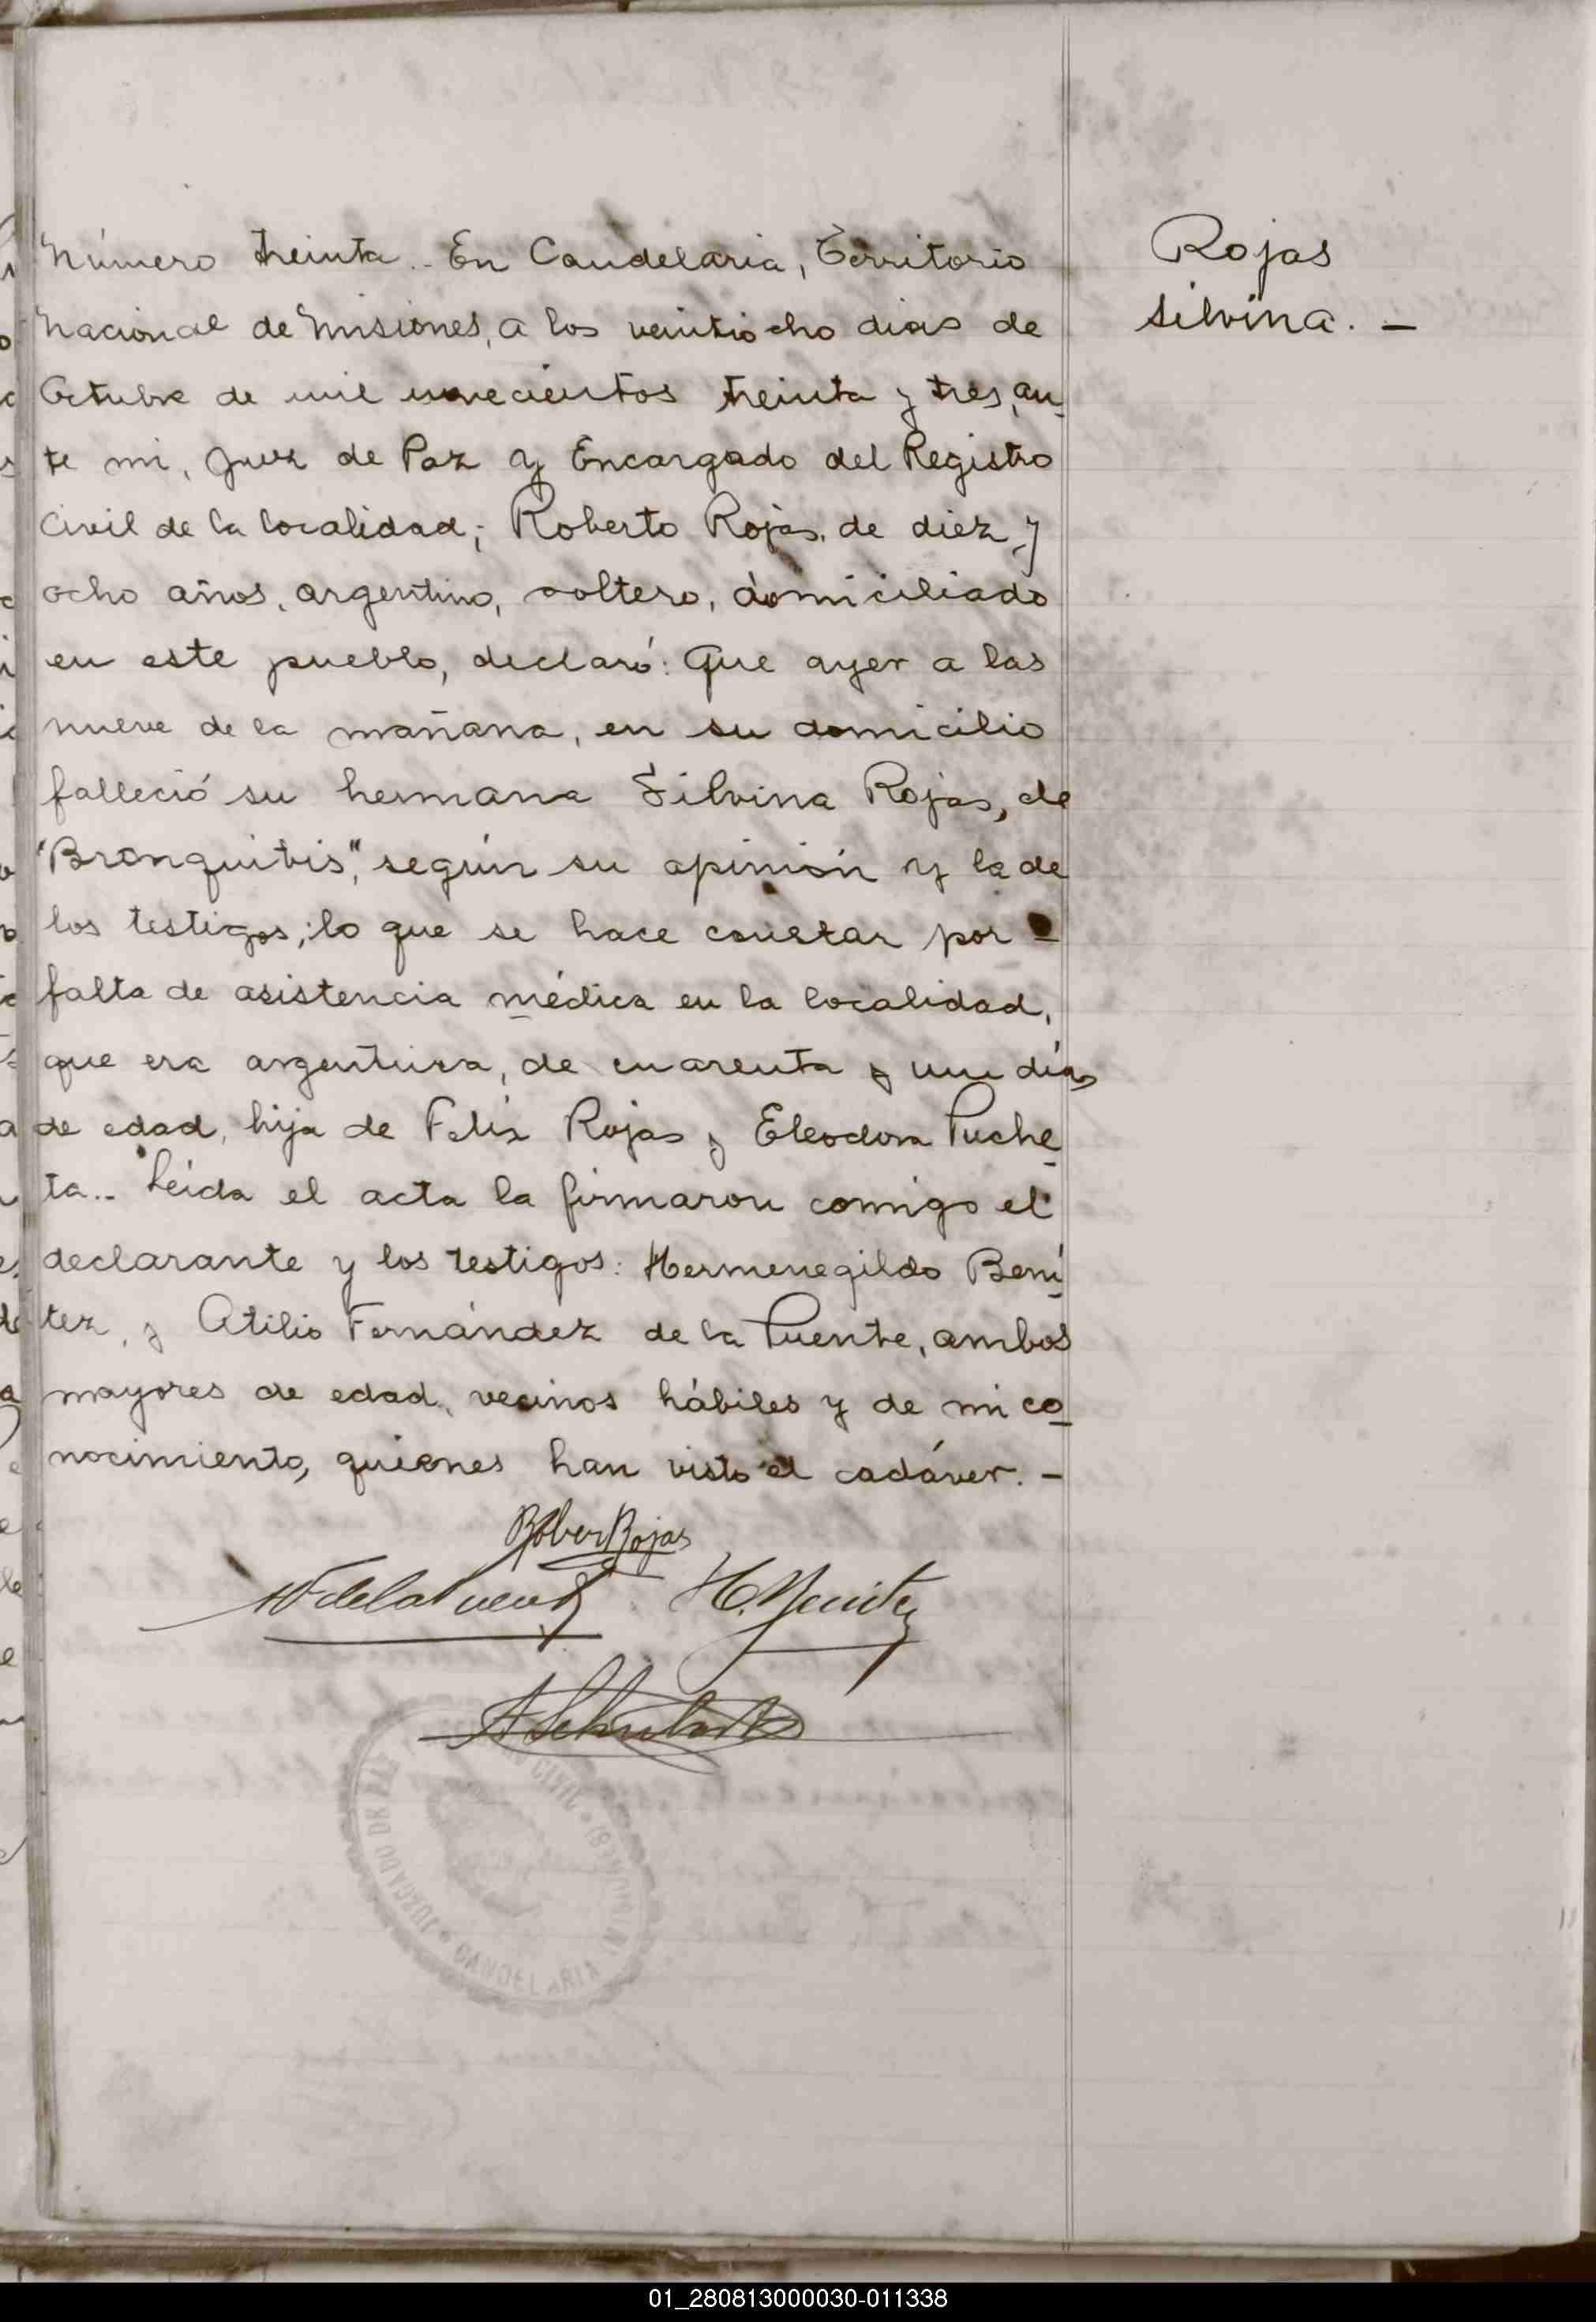 Número treinta.- En Candelaria, Territorio
Nacional de Misiones, a los veintiocho dias de
Octubre de mil novecientos treinta y tres, an-
te mi, Juez de Paz y Encargado del Registro
Civil de la localidad; Roberto Rojas, de diez y
ocho años, argentino, soltero, domiciliado
en este pueblo, declaró: Que ayer a las
nueve de la mañana, en su domicilio
falleció su hermana Silvina Rojas, de
"Bronquitis", según su opinión y la de
los testigos; lo que se hace constar por -
falta de asistencia médica en la localidad,
que era argentina, de cuarenta y un días
de edad, hija de Felix Rojas y Eleodora Puche-
ta.- Leida el acta la firmaron comigo el
declarante y los testigos: Hermenegildo Bení-
tez, y Atilio Fernández de la Puente, ambos
mayores de edad, vecinos hábiles y de mi co-
nocimiento, quienes han visto el cadáver. -
Rober Rojas
AF de la Puente H. Benitez
JUZGADO DE PAZ CIVIL * (MISIONES) * CANDELARIA
Rojas
Silvina. -
01_280813000030-011338